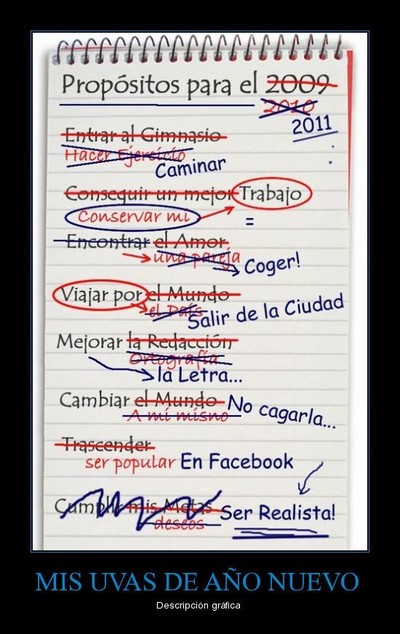 Propósitos para el 2009
2010
2011
Entrar al Gimnasio
Hacer Ejercicio
Caminar
Conseguir un mejor Trabajo
Conservar mi
=
Encontrar el Amor
una pareja
Coger!
Viajar por el Mundo
el País
Salir de la Ciudad
Mejorar la Redacción
Ortografía
la Letra...
Cambiar el Mundo No cagarla...
A mi mismo
Trascender
ser popular En Facebook
Cumplir mis Metas
deseos
Ser Realista!
MIS UVAS DE AÑO NUEVO
Descripción gráfica